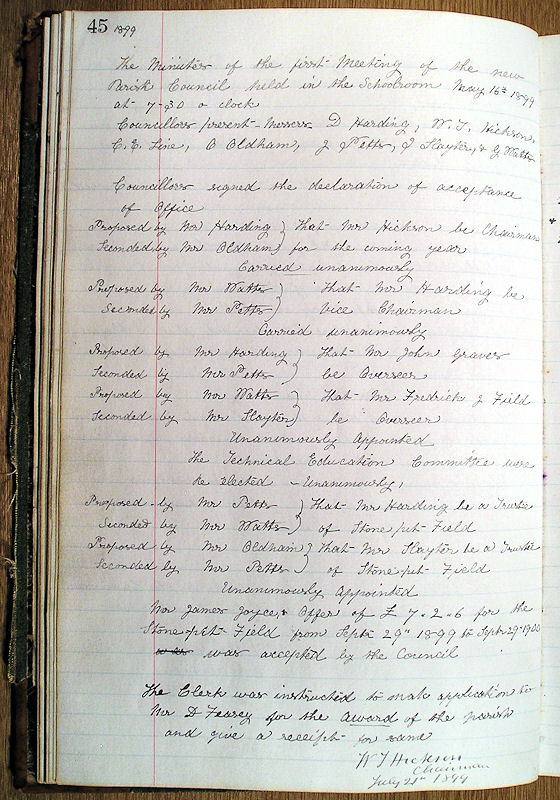 45 1899
The Minutes of the first Meeting of the new
Parish Council held in the Schoolroom May 16th 1899
at 7-30 o clock
Councillors present - Messrs D Harding, W. T. Hickson,
C. E. Line, O Oldham, J Petts, J Slayter, & G Watts
Councillors signed the declaration of acceptance
of Office
Proposed by Mr Harding } That Mr Hickson be Chairman
Seconded by Mr Oldham } for the coming year
Carried unanimously
Proposed by Mr Watts } That Mr Harding be
Seconded by Mr Petts } Vice Chairman
Carried unanimously
Proposed by Mr Harding } That Mr John Graves
Seconded by Mr Petts } be Overseer
Proposed by Mr Watts } that Mr Fredrick J Field
Seconded by Mr Slayter } be Overseer
Unanimously Appointed
The Technical Education Committee were
Re elected - Unanimously,
Proposed - by Mr Petts } That Mr Harding be a Trustee
Seconded by Mr Watts } of Stone-pit-Field
Proposed by Mr Oldham } That Mr Slayter be a Trustee
Seconded by Mr Petts } of Stone-pit-Field
Unanimously Appointed
Mr James Joyce,s Offer of £ 7-2-6 for the
Stone-pit-Field from Septr 29th 1899 to Septr 29th 1900
was accepted by the Council
The Clerk was instructed to make application to
Mr D Feasey for the award of the parish
and give a receipt for same
W T Hickson
Chairman
July 21st 1899